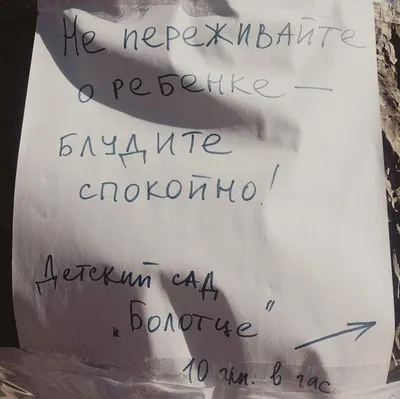 Не переживайте
о ребенке —
блудите
спокойно!
Детский сад
„Болотце"
10 грн. в час